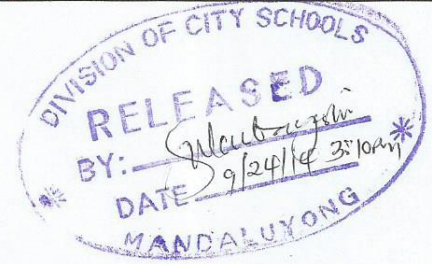 DIVISION OF CITY SCHOOLS
RELEASED
BY:
DATE 9/24/14 3:10pm
MANDALUYONG